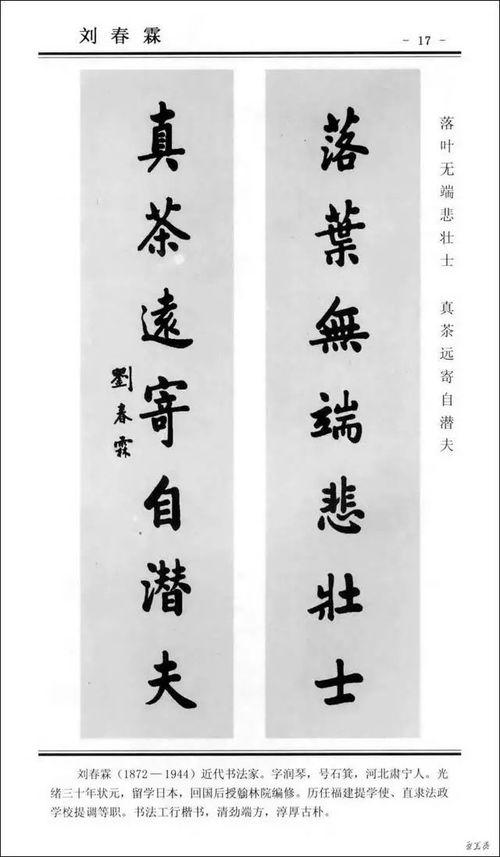 刘春霖
- 17 -
落葉無端悲壯士
真茶遠寄自潛夫
劉春霖
落叶无端悲壮士 真茶远寄自潜夫
刘春霖（1872－1944）近代书法家。字润琴，号石箕，河北肃宁人。光
绪三十年状元，留学日本，回国后授翰林院编修。历任福建提学使、直隶法政
学校提调等职。书法工行楷书，清劲端方，淳厚古朴。